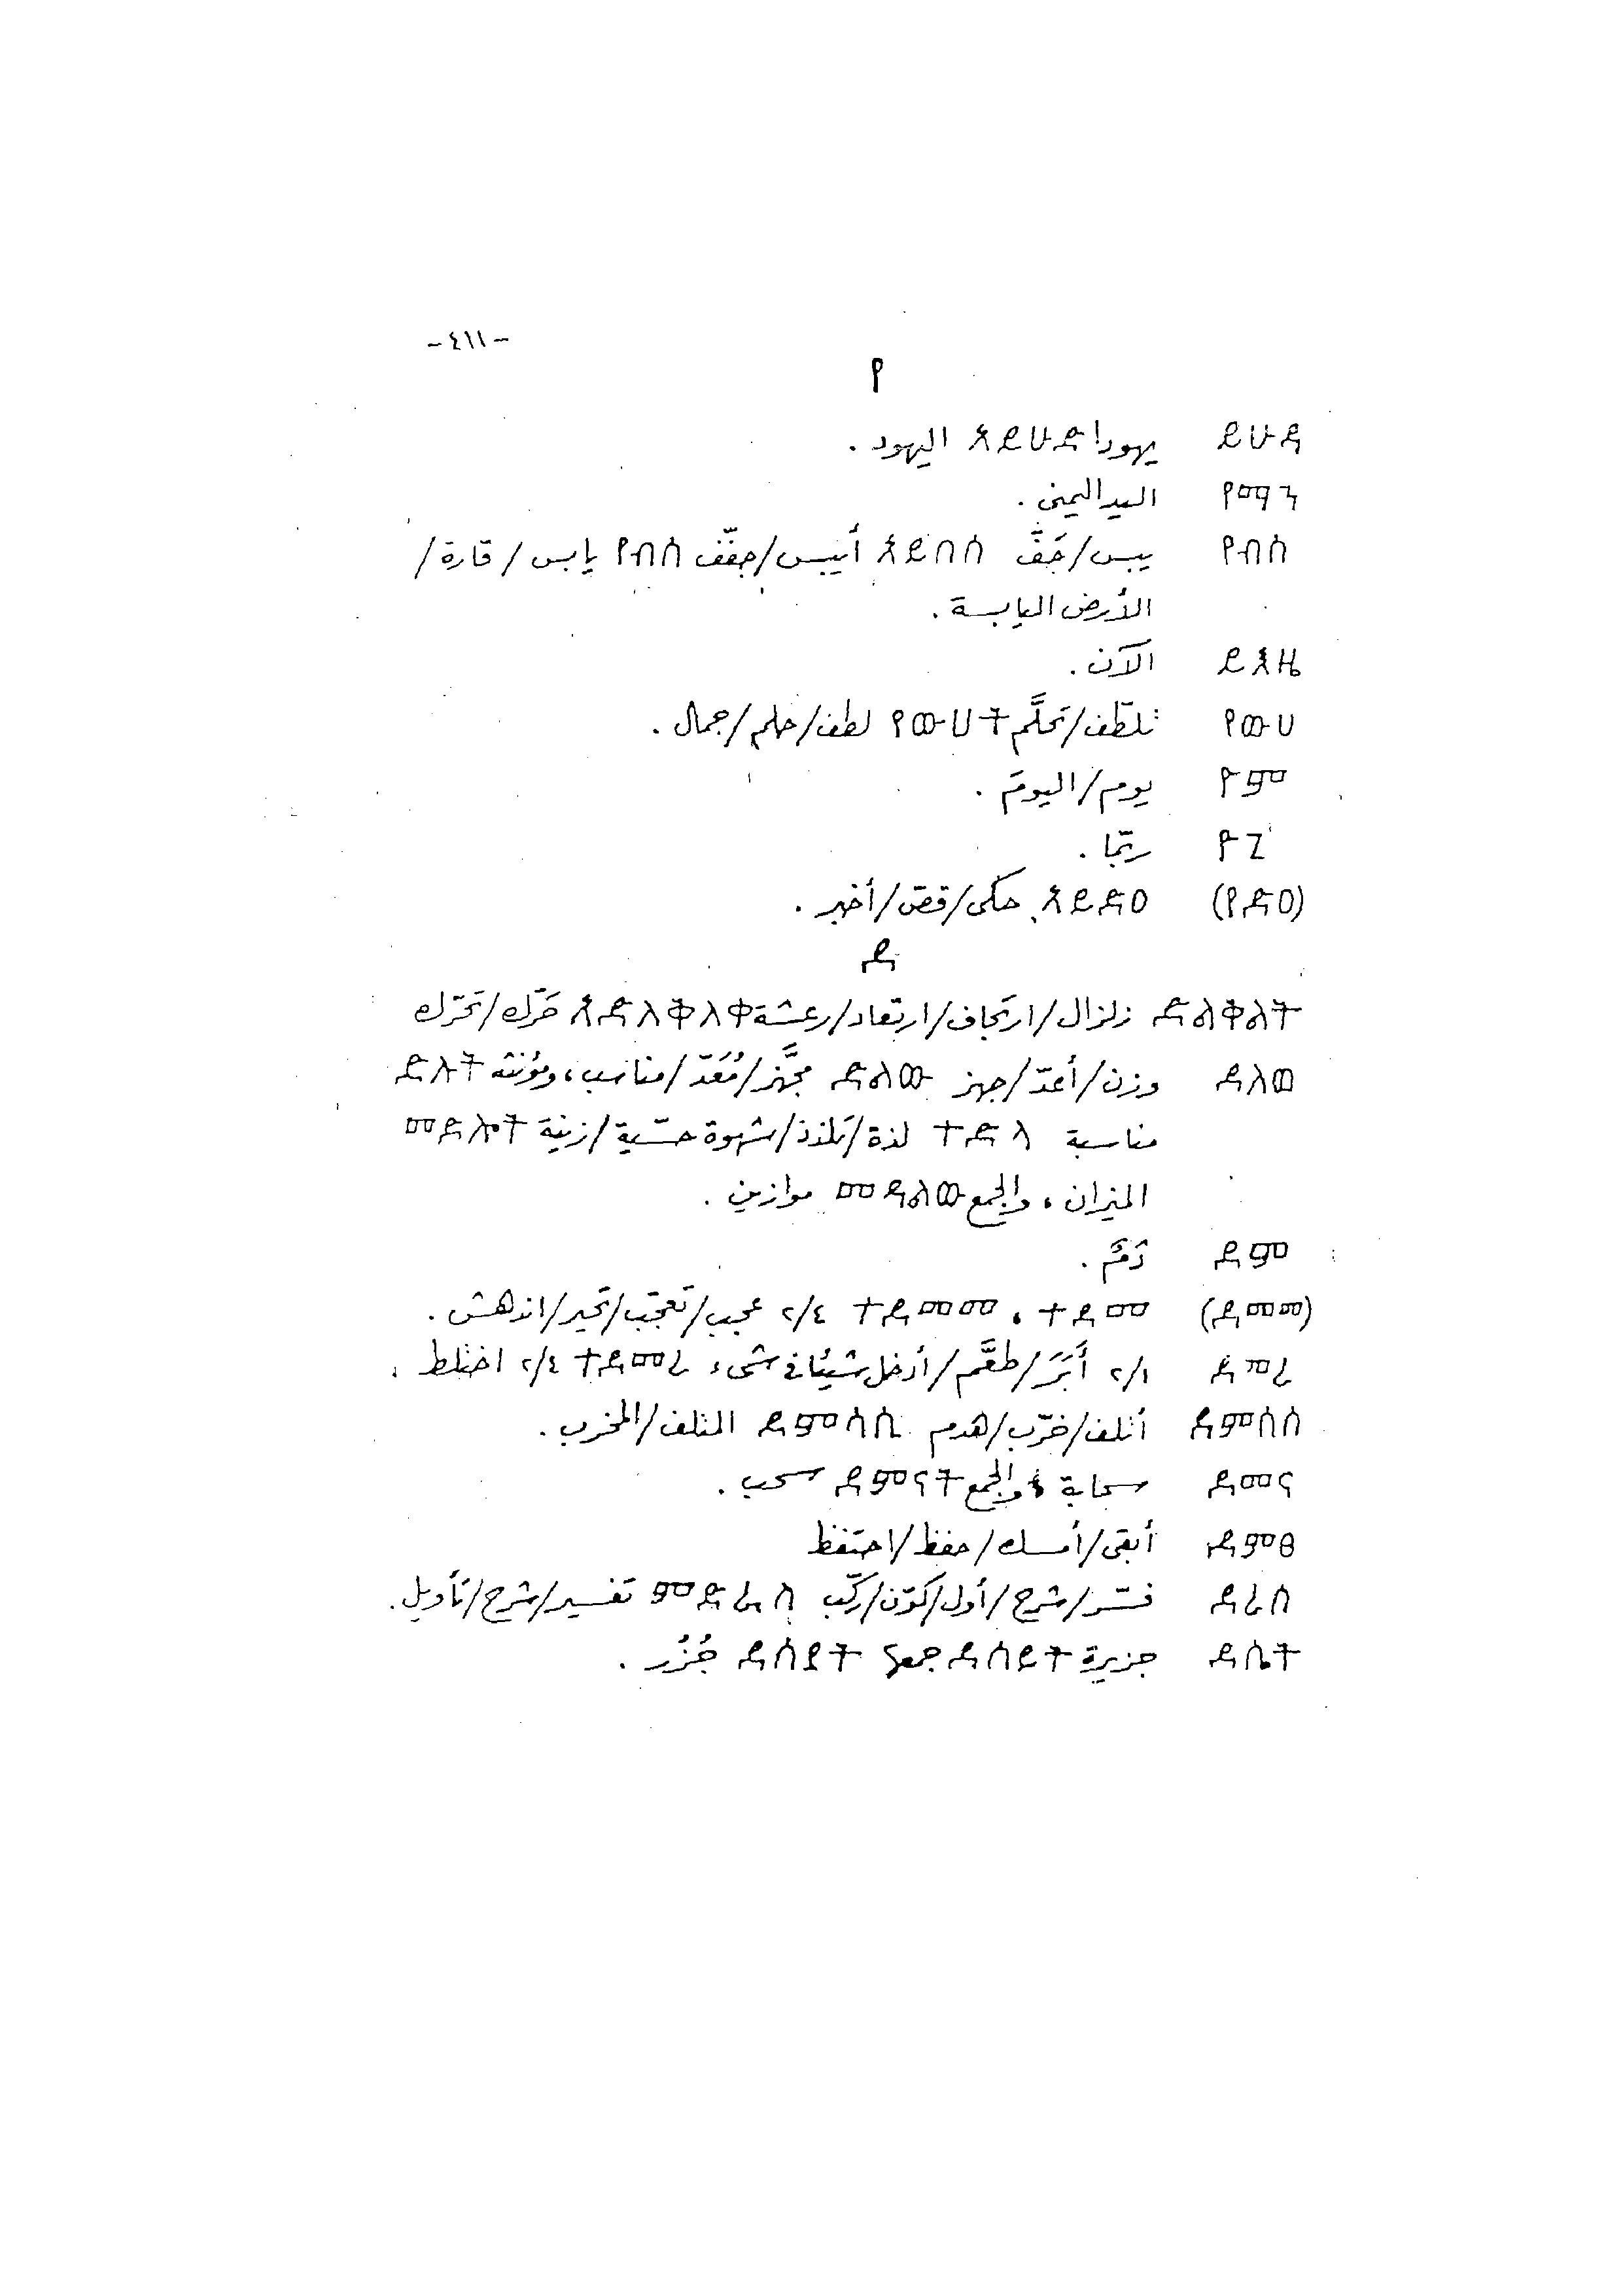 -٤١١-
የ
ይሁዳ يهودا አይሁድ اليهود .
የማን اليد اليمنى .
የብሰ يبس/جَفَّ አይበሰ أيبس/جفّف የብስ يابس/قارة/
الأرض اليابسة .
ይእዜ الآن .
የውሀ تلطّف/تحلَّم የውሀት لطف/حلم/جمال .
ዮም يوم/اليومَ .
ዮጊ ربّما .
(የድዐ) አይድዐ حكى/قصّ/أخبر .
ደ
ድልቅልቅት زلزال/ارتجاف/ارتعاد/رعشة አድለቅለቀ حَرّك/تحَرّك
ደለወ وزن/أعدّ/جهز ድልው مجهَّز/مُعَدّ/مناسب، ومؤنثه ድሉት
مناسبة ተድላ لذة/تلذذ/شهوة حسّية/زينة መዳልት
الميزان ، والجمع መዳልው موازين .
ደም دَمٌ .
(ደመመ) ተደመ ، ተደመመ ٢/٤ عجب/تعجّب/تحير/اندهش .
ደመረ ٢/١ أَبَّرَ/طعَّم/أدخل شيئا في شىء ተደመረ ٢/٤ اختلط .
ደምሰሰ أتلف/خرّب/هدم ድምሳስ المتلف/المخرب .
ደመና سحابة والجمع ደመናት سحب .
ደምፀ أبقى/أمسك/حفظ/احتفظ
ደረሰ فسّر/شرح/أول/كوّن/ركّب ድርሳን تفسير/شرح/تأويل .
ደሴት جزيرة ደሰይት جمعا ደሰያት جُزُر .